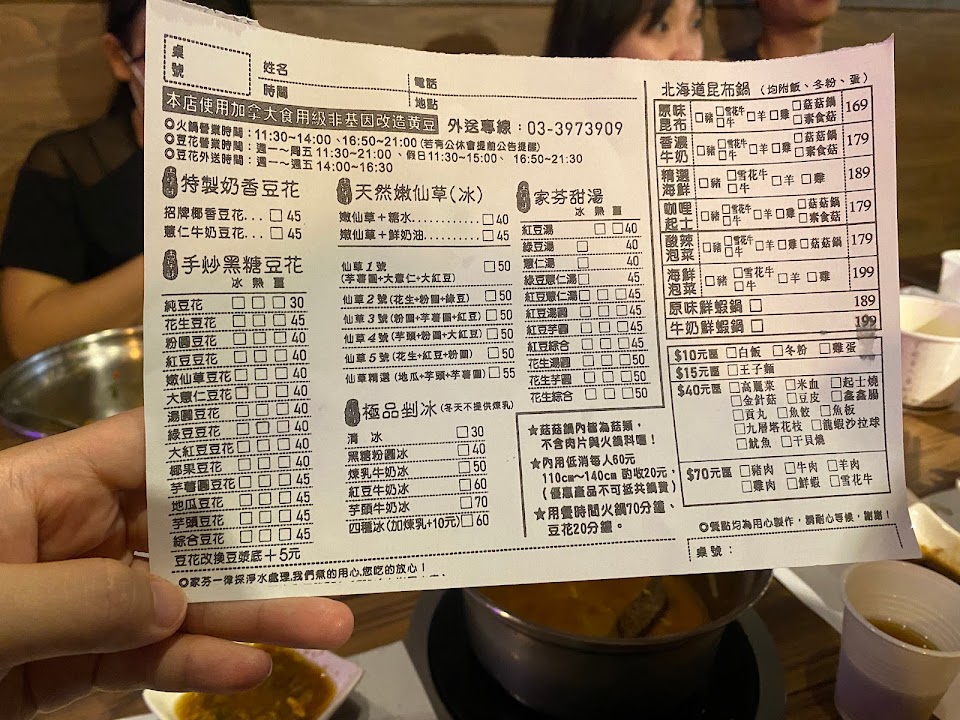 桌號
姓名
電話
時間
地點
本店使用加拿大食用級非基因改造黃豆
外送專線：03-3973909
◎火鍋營業時間：11:30~14:00、16:50~21:00 (若有公休會提前公告提醒)
◎豆花營業時間：週一～周五 11:30~21:00 、假日11:30~15:00、 16:50~21:30
◎豆花外送時間：週一～週五 14:00~16:30
特製奶香豆花
招牌椰香豆花... □ 45
薏仁牛奶豆花... □ 45
手炒黑糖豆花
冰 熱 薑
純豆花 □ □ □ 30
花生豆花 □ □ □ 45
粉圓豆花 □ □ □ 45
紅豆豆花 □ □ □ 45
嫩仙草豆花 □ □ □ 45
大薏仁豆花 □ □ □ 45
湯圓豆花 □ □ □ 45
綠豆豆花 □ □ □ 45
大紅豆豆花 □ □ □ 45
椰果豆花 □ □ □ 45
芋薯圓豆花 □ □ □ 45
地瓜豆花 □ □ □ 45
芋頭豆花 □ □ □ 45
綜合豆花 □ □ □ 45
豆花改換豆漿底＋5元
◎家芬一律採淨水處理,我們煮的用心,您吃的放心！
天然嫩仙草(冰)
嫩仙草＋糖水............ □ 40
嫩仙草＋鮮奶油......... □ 45
仙草1號 □ 50
(芋薯圓+大薏仁+大紅豆)
仙草2號 (花生+粉圓+綠豆) □ 50
仙草3號 (粉圓+芋薯圓+紅豆) □ 50
仙草4號 (芋頭+粉圓+大紅豆) □ 50
仙草5號 (花生+紅豆+粉圓) □ 50
仙草精選 (地瓜+芋頭+芋薯圓) □ 55
極品剉冰(冬天不提供煉乳)
清 冰 □ 30
黑糖粉圓冰 □ 40
煉乳牛奶冰 □ 50
紅豆牛奶冰 □ 60
芋頭牛奶冰 □ 70
四種冰(加煉乳+10元) □ 60
家芬甜湯
冰 熱 薑
紅豆湯 □ □ 40
綠豆湯 □ 40
薏仁湯 □ 40
綠豆薏仁湯 □ 40
紅豆薏仁湯 □ □ □ 45
紅豆湯圓 □ □ □ 45
紅豆芋圓 □ □ □ 45
紅豆綜合 □ □ □ 45
花生湯圓 □ □ □ 50
花生芋圓 □ □ □ 50
花生綜合 □ □ □ 50
★菇菇鍋內皆為菇類，
不含肉片與火鍋料喔！
★內用低消每人60元
110cm～140cm 酌收20元，
(優惠產品不可抵共鍋費)
★用餐時間火鍋70分鐘、
豆花20分鐘。
北海道昆布鍋 (均附飯、冬粉、蛋)
原味昆布 □豬 □雪花牛 □牛 □羊 □雞 □菇菇鍋 □素食菇 169
香濃牛奶 □豬 □雪花牛 □牛 □羊 □雞 □菇菇鍋 □素食菇 179
精選海鮮 □豬 □雪花牛 □牛 □羊 □雞 189
咖哩起士 □豬 □雪花牛 □牛 □羊 □雞 □菇菇鍋 □素食菇 179
酸辣泡菜 □豬 □雪花牛 □牛 □羊 □雞 □菇菇鍋 179
海鮮泡菜 □豬 □雪花牛 □牛 □羊 □雞 199
原味鮮蝦鍋 □ 189
牛奶鮮蝦鍋 □ 199
$10元區 □白飯 □冬粉 □雞蛋
$15元區 □王子麵
$40元區 □高麗菜 □米血 □起士燒
□金針菇 □豆皮 □鑫鑫腸
□貢丸 □魚餃 □魚板
□九層塔花枝 □龍蝦沙拉球
□魷魚 □干貝燒
$70元區 □豬肉 □牛肉 □羊肉
□雞肉 □鮮蝦 □雪花牛
◎餐點均為用心製作，請耐心等候，謝謝！
桌號：